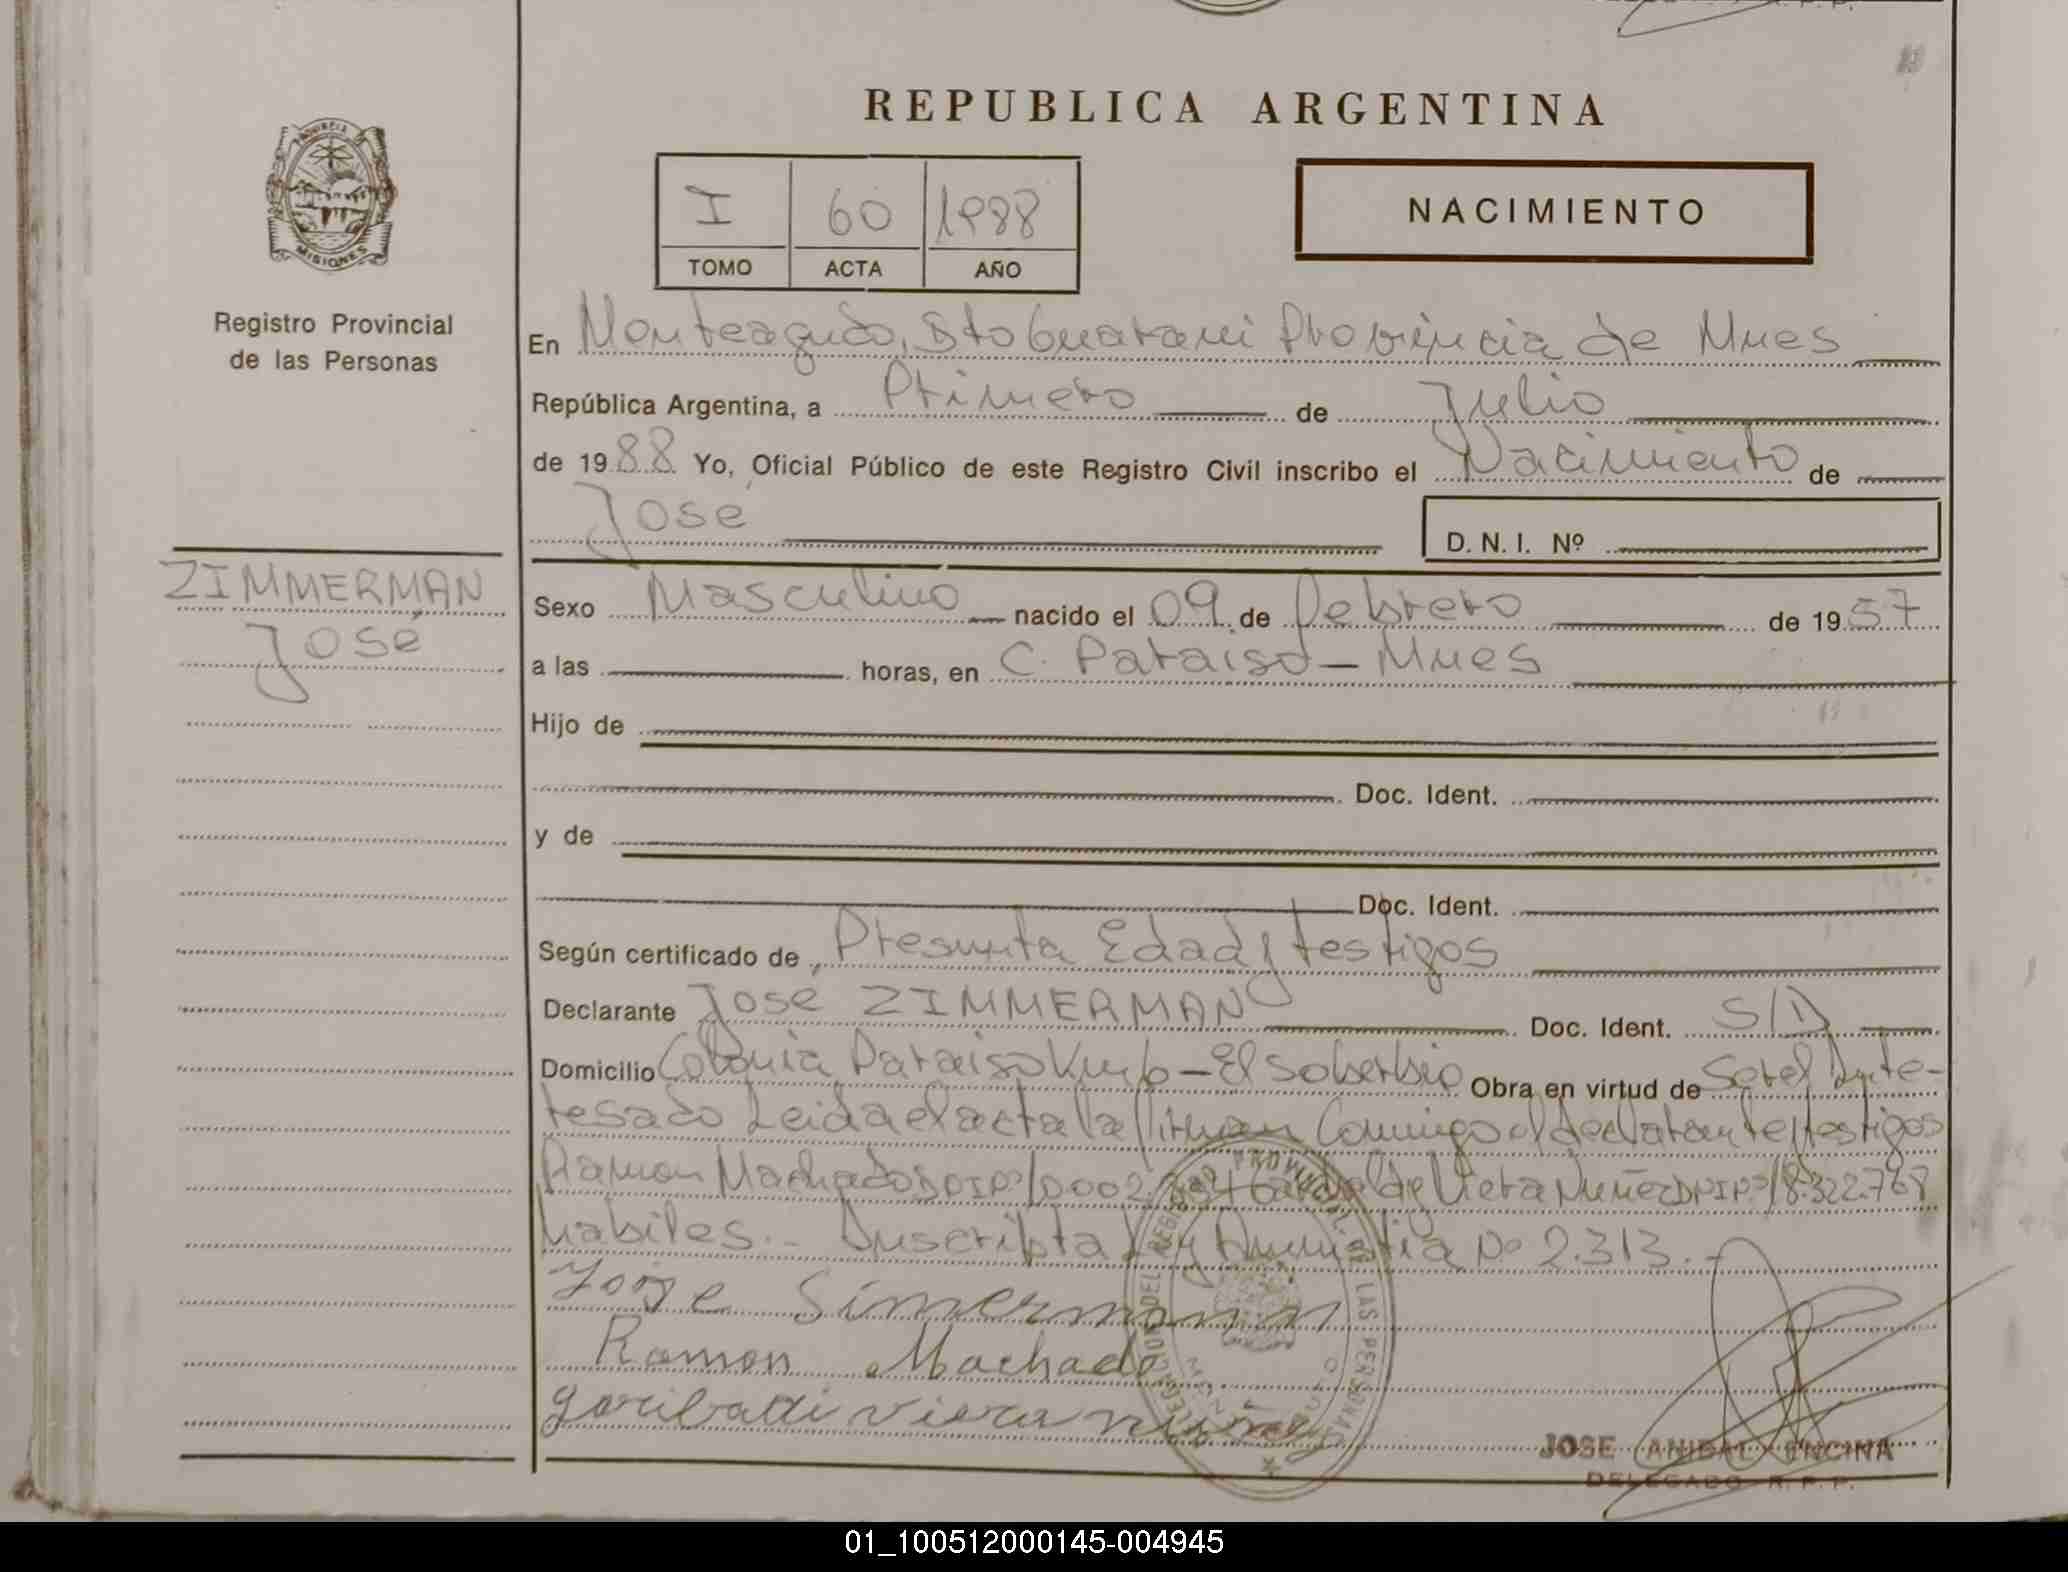 REPUBLICA ARGENTINA
PROVINCIA
MISIONES
Registro Provincial
de las Personas
I 60 1988
TOMO ACTA AÑO
NACIMIENTO
En Monteagudo, Dto Guarani Provincia de Mnes
República Argentina, a Primero de Julio
de 1988 Yo, Oficial Público de este Registro Civil inscribo el Nacimiento de
José
D. N. I. Nº
ZIMMERMAN
José
Sexo Masculino nacido el 09 de Febrero de 1957
a las horas, en C. Paraiso - Mnes
Hijo de
Doc. Ident.
y de
Doc. Ident.
Según certificado de Presunta Edad y testigos
Declarante José ZIMMERMAN Doc. Ident. S/D
Domicilio Colonia Paraiso - El Soberbio Obra en virtud de
Leida el acta la firman Conmigo el declarante y testigos
Ramon Machado Vieira Nuñez DNI Nº 18.322.768
habiles.- Inscripta Ley Amnistia Nº 2.313.-
Jose Simermann
Ramon Machado
garibaldi viera nuñez
DELEGACION DEL REGISTRO PROVINCIAL DE LAS PERSONAS
JOSE ANIBAL ENCINA
DELEGADO R. P. P.
01_100512000145-004945